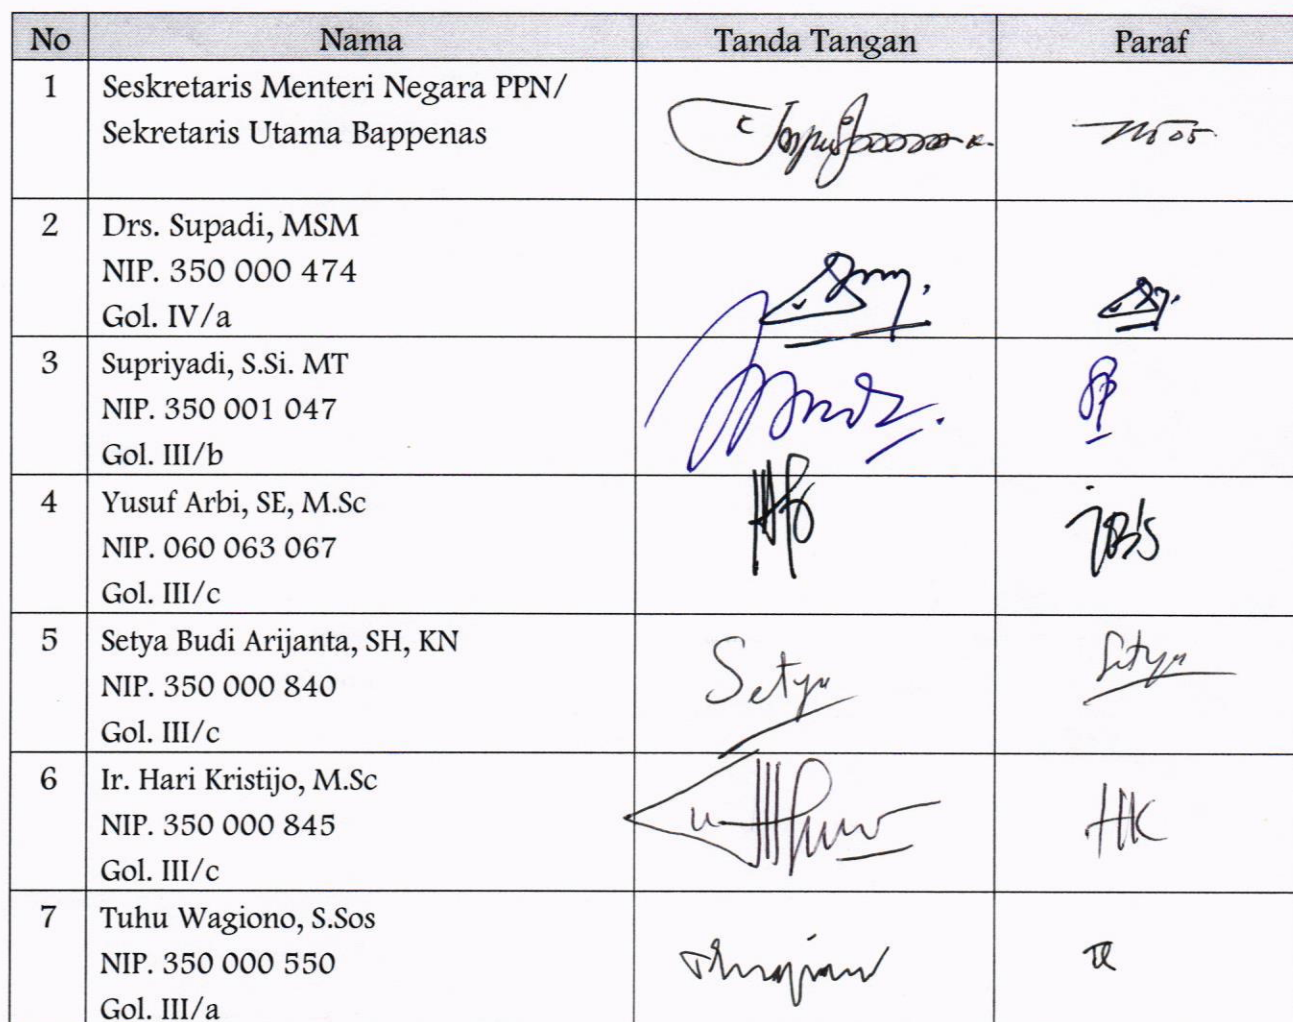 No Nama Tanda Tangan Paraf
1 Seskretaris Menteri Negara PPN/
Sekretaris Utama Bappenas
2 Drs. Supadi, MSM
NIP. 350 000 474
Gol. IV/a
3 Supriyadi, S.Si. MT
NIP. 350 001 047
Gol. III/b
4 Yusuf Arbi, SE, M.Sc
NIP. 060 063 067
Gol. III/c
5 Setya Budi Arijanta, SH, KN
NIP. 350 000 840 Setya Setya
Gol. III/c
6 Ir. Hari Kristijo, M.Sc
NIP. 350 000 845 HK
Gol. III/c
7 Tuhu Wagiono, S.Sos
NIP. 350 000 550
Gol. III/a